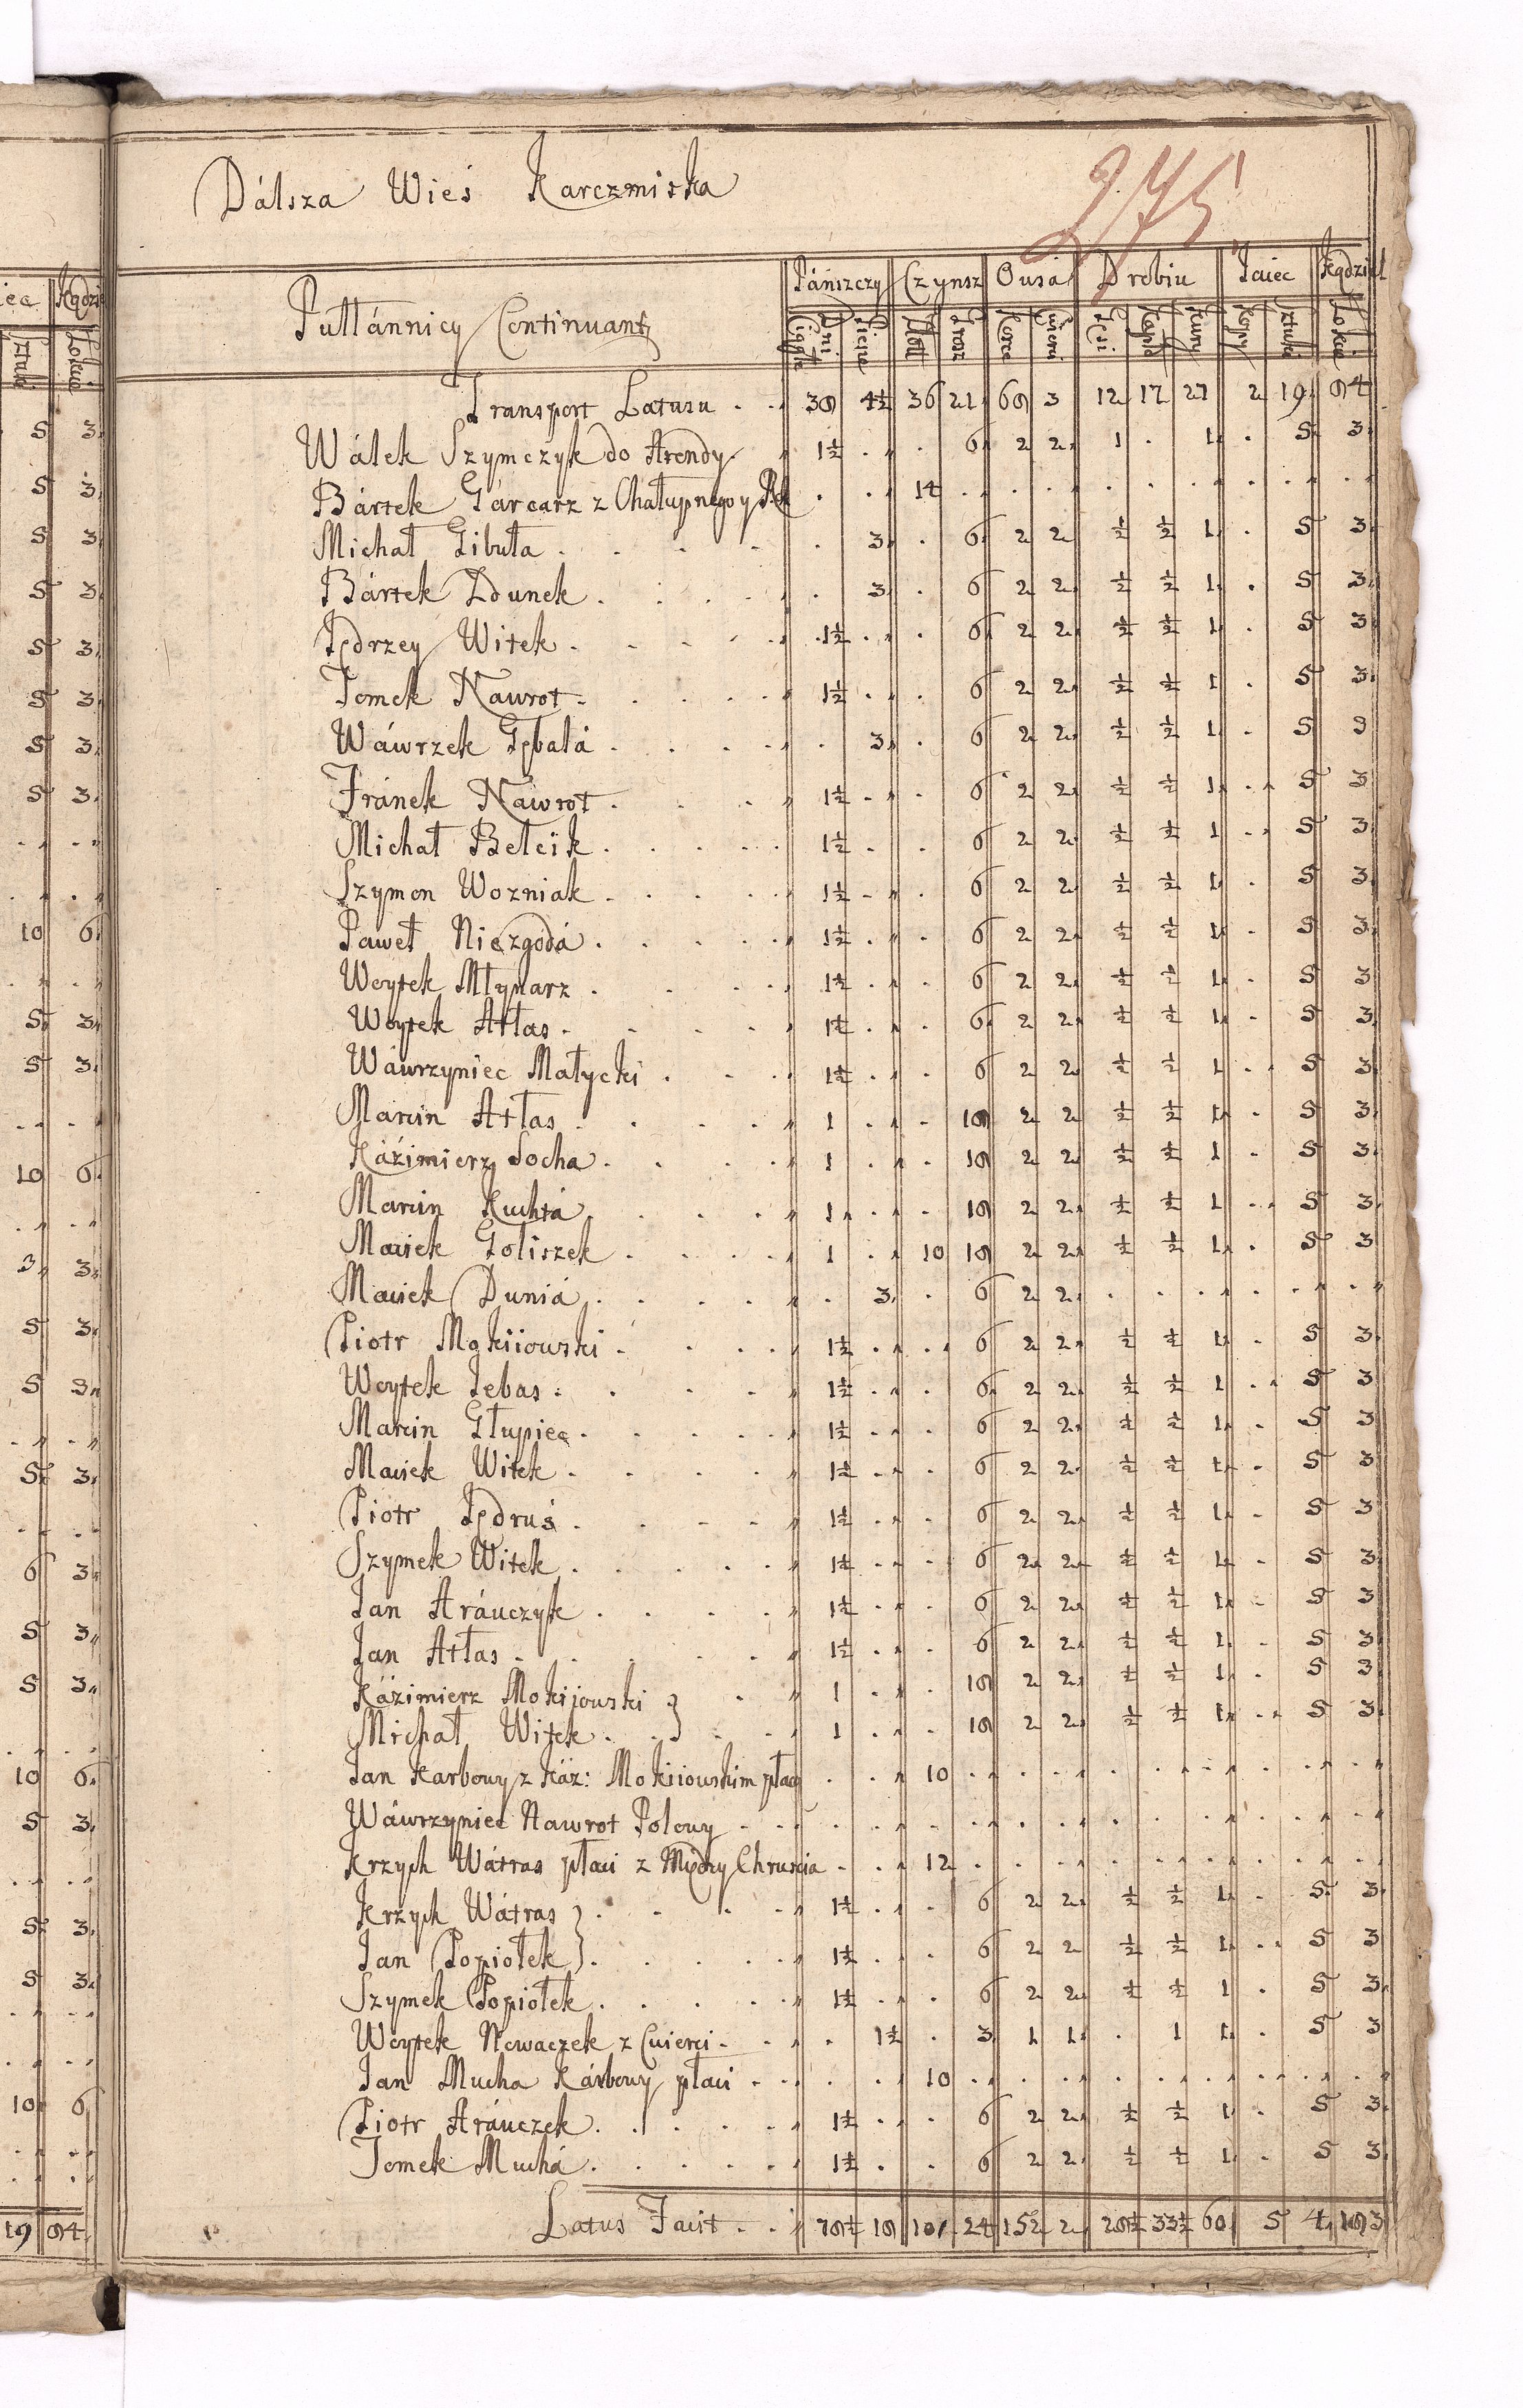 Dálsza Wieś Karczmiska
275
Pułłánnicy Continuant
Páńszczy Czynsz Owsá Drobiu Jaiec Kądziel
Dni Ciągłe Piesze Złott Grosz Korce Cwierci Gęsi Kapło Kury Kopy Sztuki Łokcie
Transport Latusu . . 39 4½ 36 21 69 3 12 17 27 2 19 94
Wálek Szymczyk do Arendy 1½ . . 6 2 2 1 . 1 . 5 3
Bártek Gárcarz z Chałupnego y Rok . . 14 . . . . . . . . .
Michał Gibuła . 3 . 6 2 2 ½ ½ 1 . 5 3
Bártek Zdunek . 3 . 6 2 2 ½ ½ 1 . 5 3
Jędrzey Witek 1½ . . 6 2 2 ½ ½ 1 . 5 3
Tomek Nawrot 1½ . . 6 2 2 ½ ½ 1 . 5 3
Wáwrzek Gębalá . 3 . 6 2 2 ½ ½ 1 . 5 3
Fránek Náwrot 1½ . . 6 2 2 ½ ½ 1 . 5 3
Michał Belcik 1½ . . 6 2 2 ½ ½ 1 . 5 3
Szymon Wozniak 1½ . . 6 2 2 ½ ½ 1 . 5 3
Paweł Niezgodá 1½ . . 6 2 2 ½ ½ 1 . 5 3
Woytek Młynarz 1½ . . 6 2 2 ½ ½ 1 . 5 3
Woytek Atłas 1½ . . 6 2 2 ½ ½ 1 . 5 3
Wáwrzyniec Małycki 1½ . . 6 2 2 ½ ½ 1 . 5 3
Marcin Atłas 1 . . 19 2 2 ½ ½ 1 . 5 3
Káźimierz Socha 1 . . 19 2 2 ½ ½ 1 . 5 3
Marcin Kuchtá 1 . . 19 2 2 ½ ½ 1 . 5 3
Maciek Goliszek 1 . 10 19 2 2 ½ ½ 1 . 5 3
Maciek Duniá . 3 . 6 2 2 . . . . . .
Piotr Mokiiowski 1½ . . 6 2 2 ½ ½ 1 . 5 3
Woytek Jebas 1½ . . 6 2 2 ½ ½ 1 . 5 3
Marcin Głupiec 1½ . . 6 2 2 ½ ½ 1 . 5 3
Maciek Witek 1½ . . 6 2 2 ½ ½ 1 . 5 3
Piotr Jędruś 1½ . . 6 2 2 ½ ½ 1 . 5 3
Szymek Witek 1½ . . 6 2 2 ½ ½ 1 . 5 3
Jan Aráwczyk 1½ . . 6 2 2 ½ ½ 1 . 5 3
Jan Atłas 1½ . . 6 2 2 ½ ½ 1 . 5 3
Káźimierz Mokijowski } 1 . . 19 2 2 ½ ½ 1 . 5 3
Michał Witek } 1 . . 19 2 2 ½ ½ 1 . 5 3
Jan Karbowy z Káź: Mokiiowskim płaci . . 10 . . . . . . . . .
Wáwrzyniec Nawrot Polowy . . . . . . . . . . . .
Krzych Wátras płaci z Między Chruscia . . 12 . . . . . . . . .
Krzych Wátras } 1½ . . 6 2 2 ½ ½ 1 . 5 3
Jan Popiołek } 1½ . . 6 2 2 ½ ½ 1 . 5 3
Szymek Popiołek 1½ . . 6 2 2 ½ ½ 1 . 5 3
Woytek Nowaczek z Cwierci . 1½ . 3 1 1 . 1 1 . 5 3
Jan Mucha Kárbowy płaci . . 10 . . . . . . . . .
Piotr Aráwczek 1½ . . 6 2 2 ½ ½ 1 . 5 3
Tomek Muchá 1½ . . 6 2 2 ½ ½ 1 . 5 3
Latus Facit . . 79½ 19 101 24 152 2 29½ 33½ 60 5 4 193